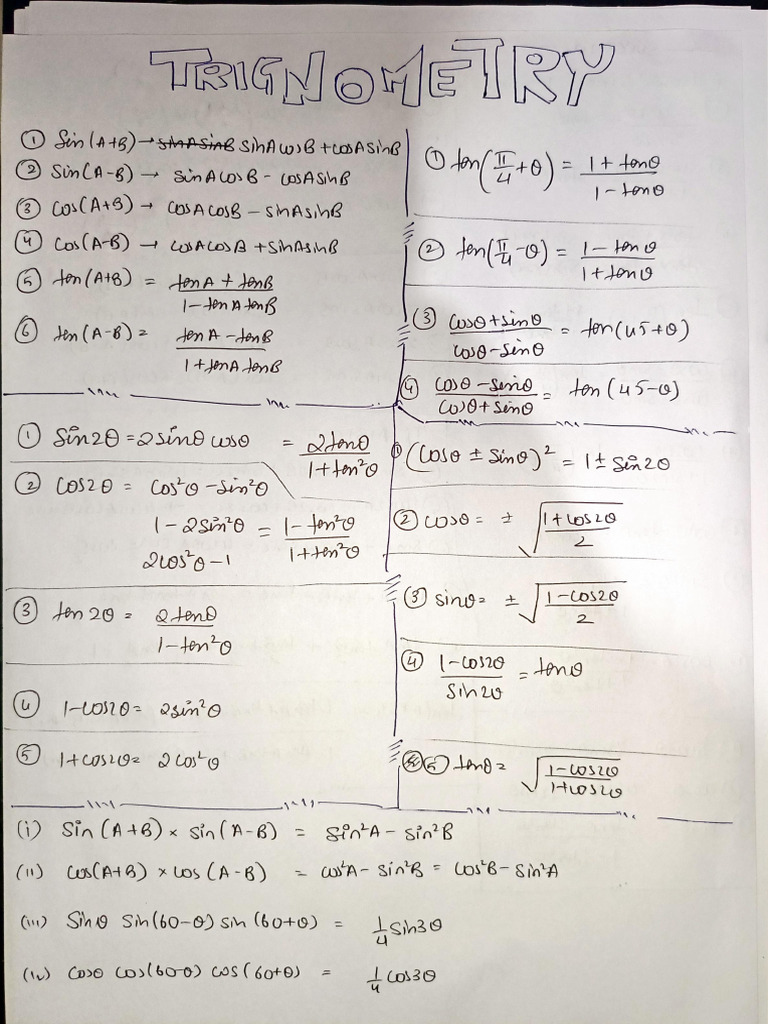 TRIGNOMETRY
① Sin(A+B) → sinAsinB sinAcosB + cosAsinB
② Sin(A-B) → sinAcosB - cosAsinB
③ Cos(A+B) → cosAcosB - sinAsinB
④ Cos(A-B) → cosAcosB + sinAsinB
⑤ tan(A+B) = tanA + tanB
1 - tanA tanB
⑥ tan(A-B) = tanA - tanB
1 + tanA tanB
① tan(π/4 + θ) = 1 + tanθ
1 - tanθ
② tan(π/4 - θ) = 1 - tanθ
1 + tanθ
③ cosθ + sinθ = tan(45+θ)
cosθ - sinθ
④ cosθ - sinθ = tan(45-θ)
cosθ + sinθ
① Sin2θ = 2sinθ cosθ = 2tanθ
1 + tan²θ
② cos2θ = cos²θ - sin²θ
1 - 2sin²θ = 1 - tan²θ
2cos²θ - 1 1 + tan²θ
③ tan2θ = 2tanθ
1 - tan²θ
④ 1-cos2θ = 2sin²θ
⑤ 1+cos2θ = 2cos²θ
① (cosθ ± sinθ)² = 1 ± sin2θ
② cosθ = ± √1+cos2θ
2
③ sinθ = ± √1-cos2θ
2
④ 1-cos2θ = tanθ
sin2θ
⑤ tanθ = √1-cos2θ
1+cos2θ
(i) Sin(A+B) × sin(A-B) = sin²A - sin²B
(ii) cos(A+B) × cos(A-B) = cos²A - sin²B = cos²B - sin²A
(iii) Sinθ sin(60-θ) sin(60+θ) = 1/4 sin3θ
(iv) cosθ cos(60-θ) cos(60+θ) = 1/4 cos3θ